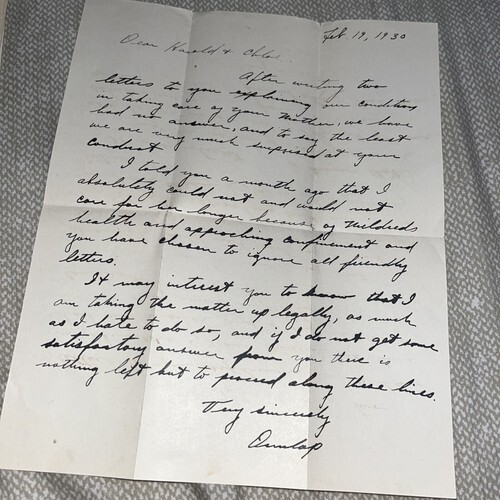 Feb 19, 1930
Dear Harold & Chloe:
After writing two
letters to you explaining our condition
in taking care of your Mother, we have
had no answer, and to say the least
we are very much surprised at your
conduct
I told you a month ago that I
absolutely could not and would not
care for her longer because of Mildreds
health and approching confinement and
you have chosen to ignore all friendly
letters.
It may interest you to know that I
am taking the matter up legally, as much
as I hate to do so, and if I do not get some
satisfactory answer from you there is
nothing left but to proceed along these lines.
Very sincerely
Dunlap